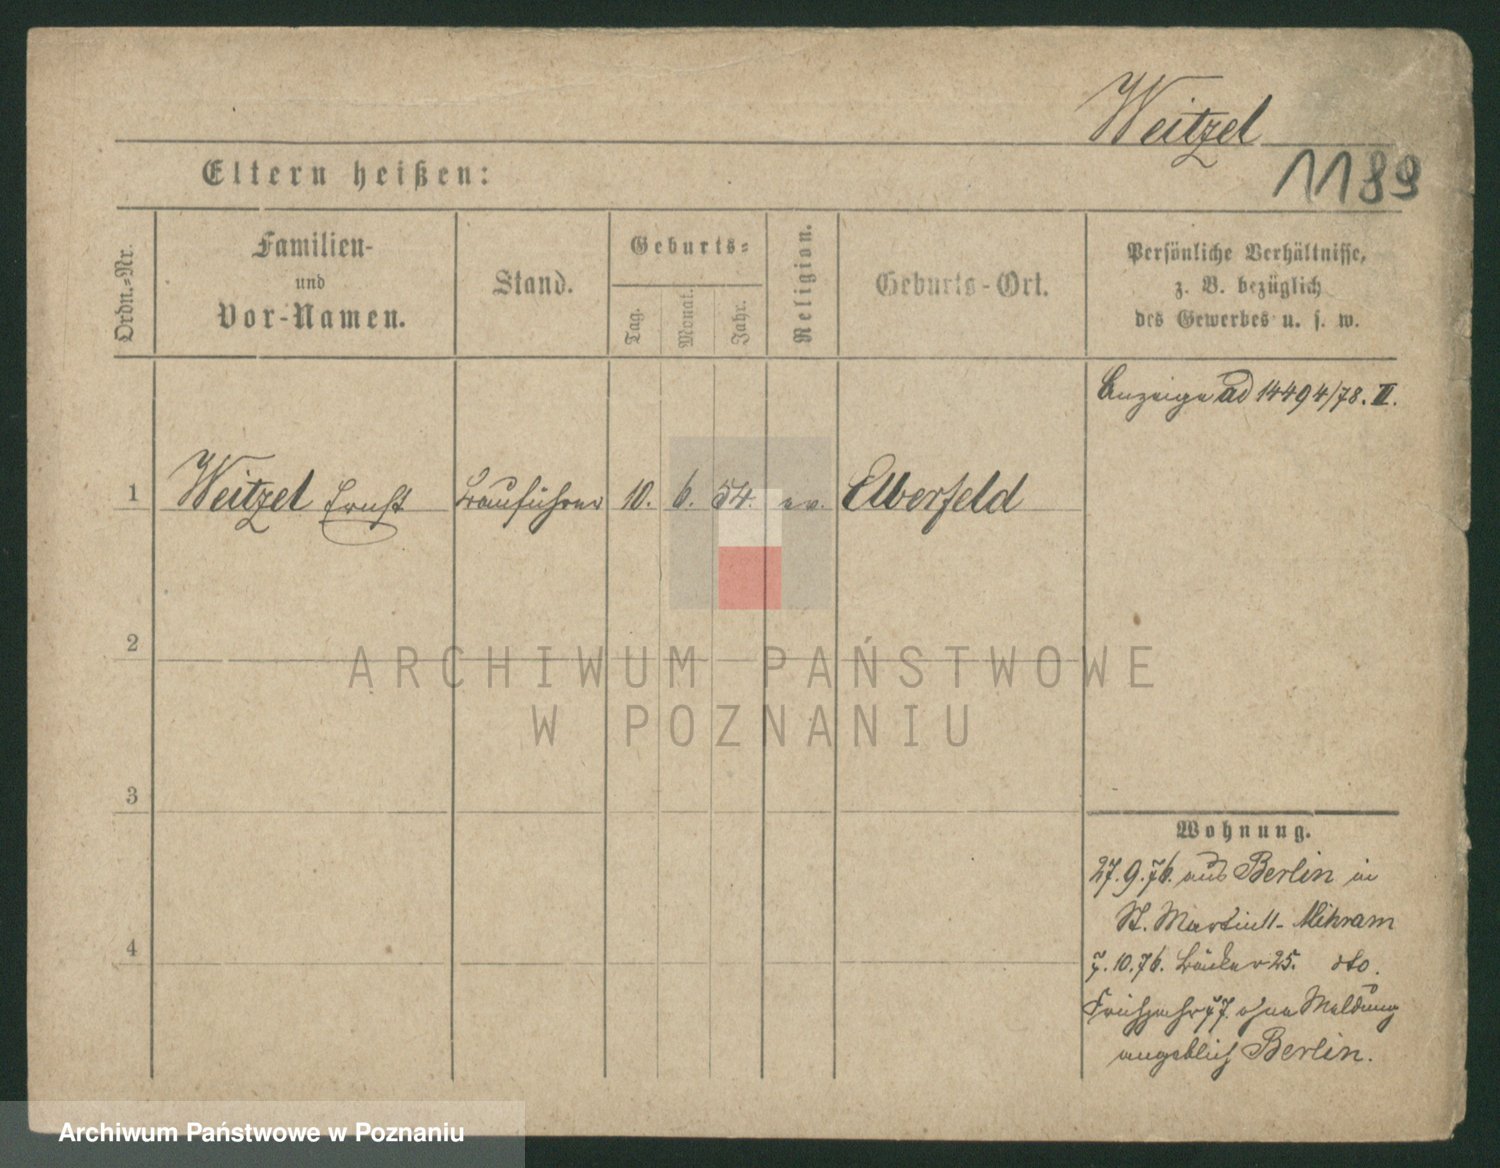 Weitzel
1189
Eltern heißen:
Ordn.-Nr.
Familien-
und
Vor-Namen.
Stand.
Geburts-
Tag.
Monat.
Jahr.
Religion.
Geburts-Ort.
Persönliche Verhältnisse,
z. B. bezüglich
des Gewerbes u. s. w.
Anzeige ad 14494/78. II.
1 Weitzel Ernst Bauführer 10. 6. 54. ev. Elberfeld
2
ARCHIWUM PAŃSTWOWE
W POZNANIU
3
Wohnung.
27.9.76. aus Berlin in
St. Martin 11- Mikram
4
7.10.76. Bäcker 25. dto.
Frühjahr 77. ohne Meldung
angeblich Berlin.
Archiwum Państwowe w Poznaniu